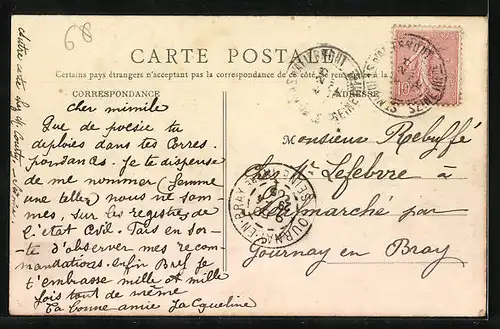 68
CARTE POSTALE
Certains pays étrangers n'acceptent pas la correspondance de ce côté, se renseigner à la
CORRESPONDANCE
ADRESSE
cher mimile
Que de poesie tu
deploies dans tes Corres
pondances. Je te dispense
de me nommer (femme
une telle) nous ne som-
mes, sur les registres de
l'etat Civil. Fais en sor-
te d'observer mes recom-
mandations. enfin Bref je
t'embrasse mille et mille
fois tout de même
Ta bonne amie Jacqueline
Monsieur Rebuffé
chez Mr Lefebvre à
par
Gournay en Bray
GOURNAY-EN-BRAY
SEINE INFRE
10